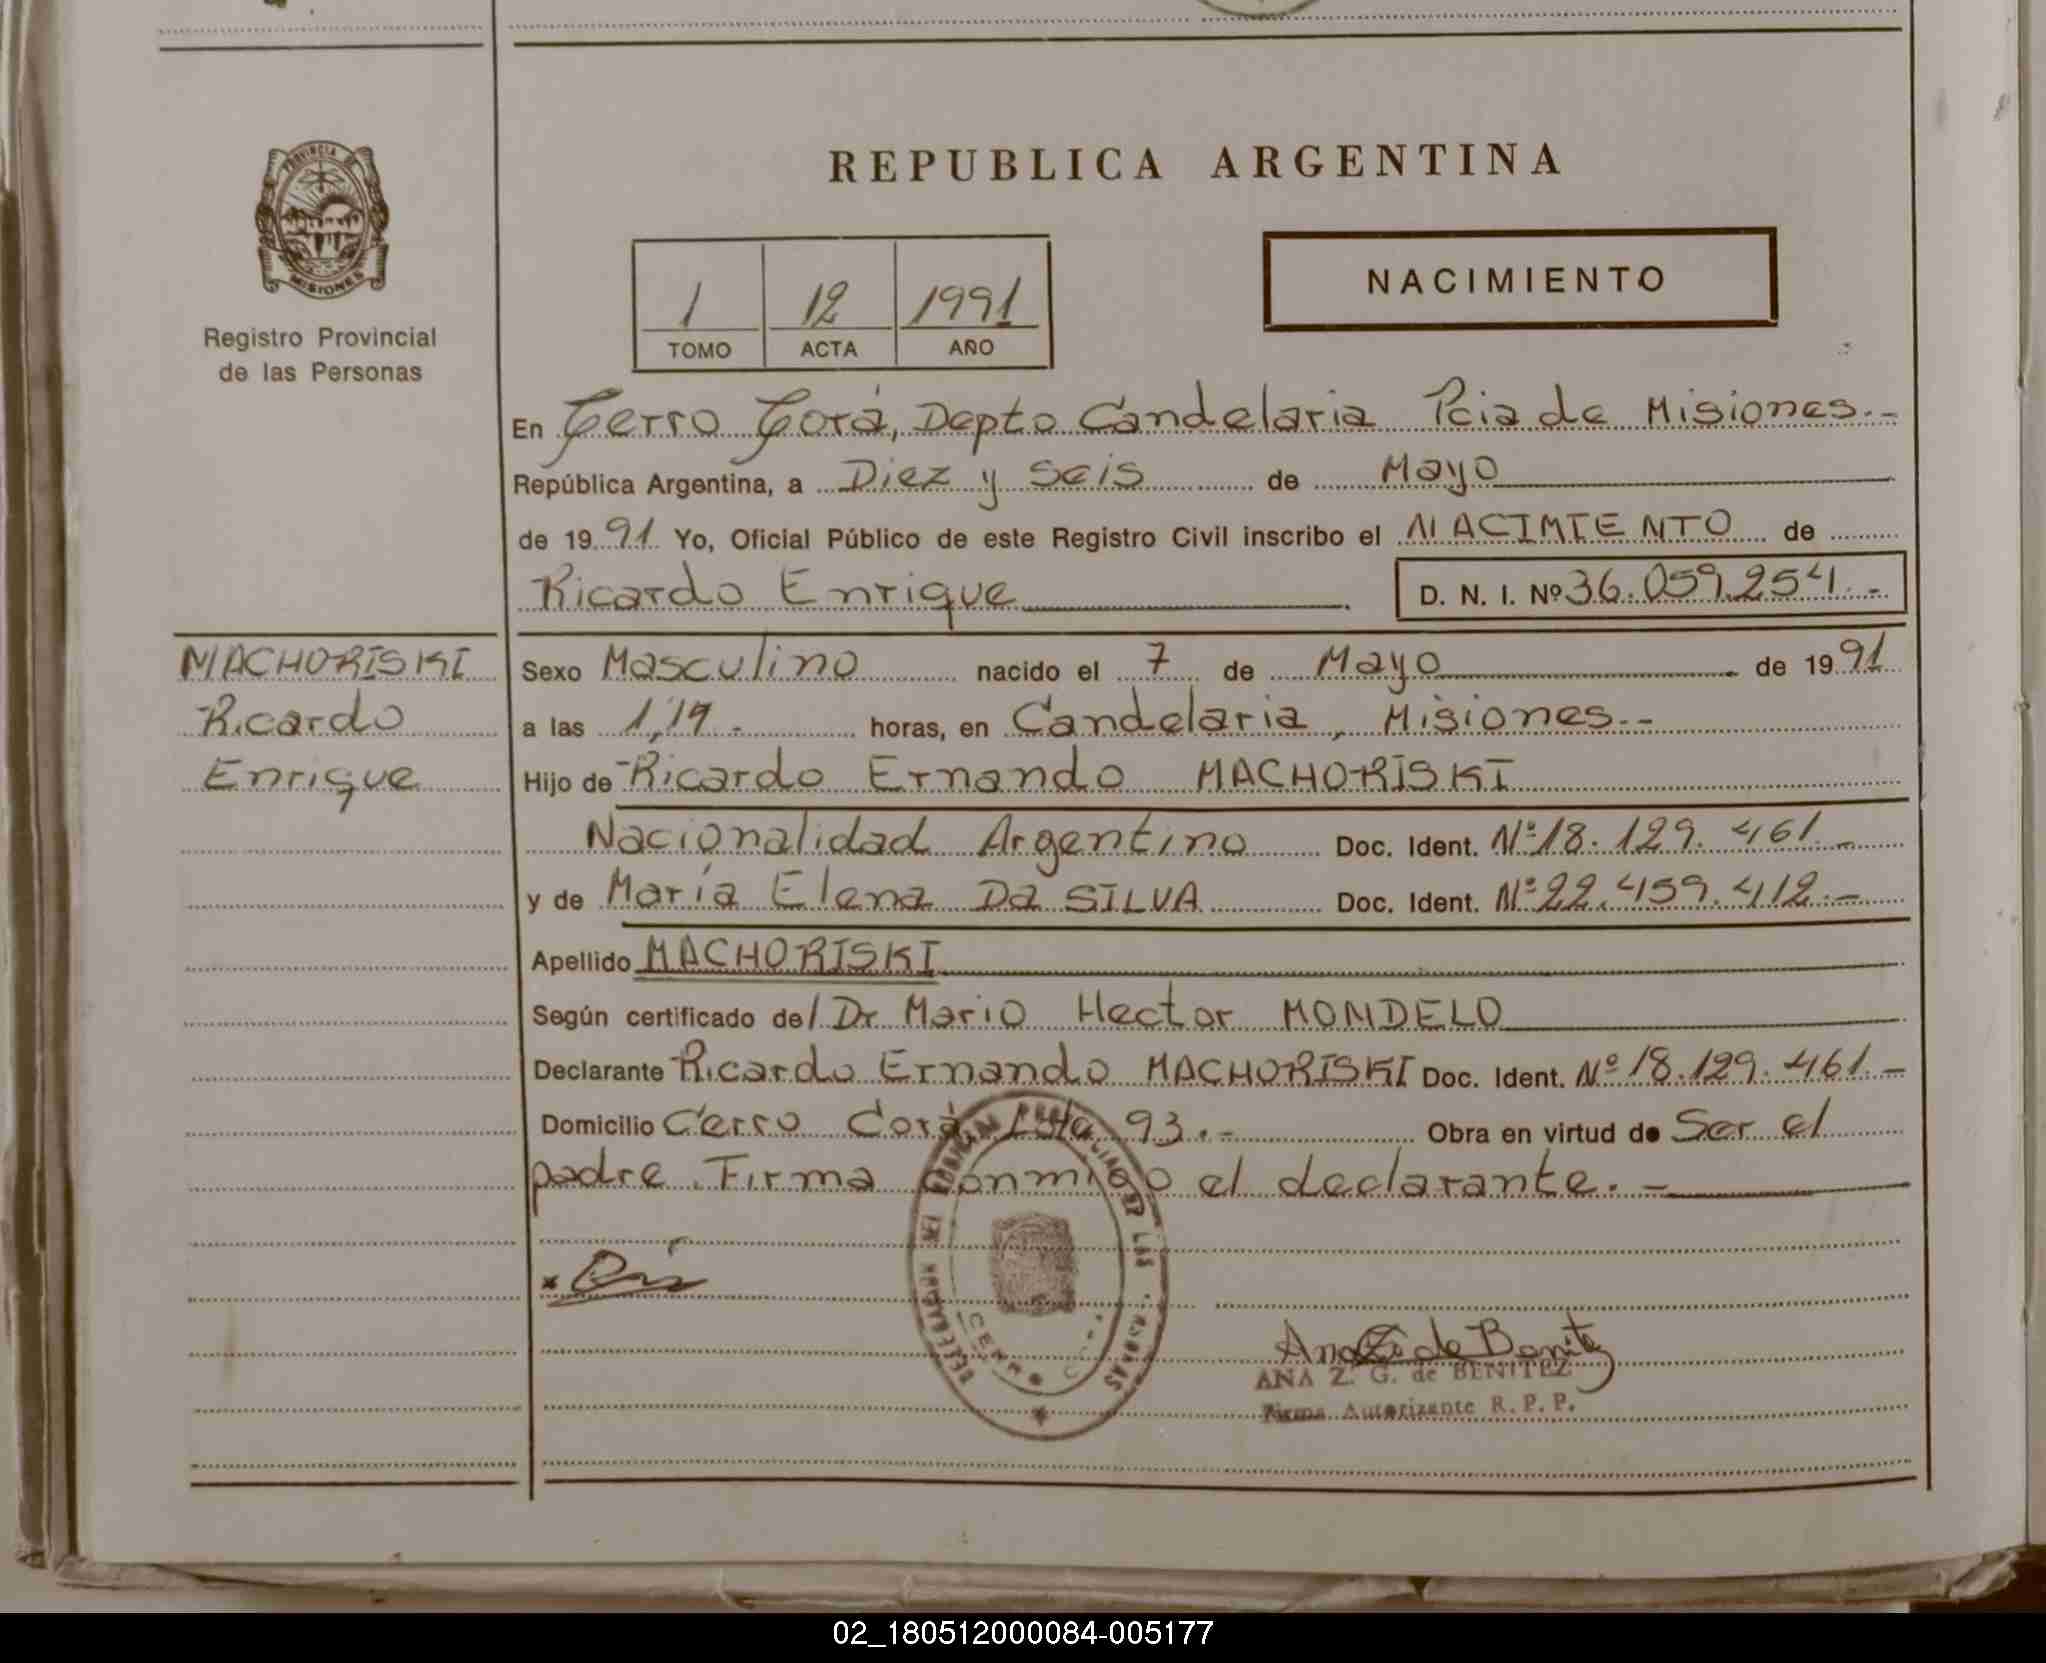 PROVINCIA DE
MISIONES
Registro Provincial
de las Personas
REPUBLICA ARGENTINA
1 12 1991
TOMO ACTA AÑO
NACIMIENTO
En Cerro Corá, Depto Candelaria Pcia de Misiones.-
República Argentina, a Diez y seis de Mayo
de 1991 Yo, Oficial Público de este Registro Civil inscribo el NACIMIENTO de
Ricardo Enrique D. N. I. Nº 36.059.254.-
MACHORISKI
Ricardo
Enrique
Sexo Masculino nacido el 7 de Mayo de 1991
a las 1,19.- horas, en Candelaria, Misiones.-
Hijo de Ricardo Ernando MACHORISKI
Nacionalidad Argentino Doc. Ident. Nº 18.129.461.-
y de María Elena Da SILVA Doc. Ident. Nº 22.459.412.-
Apellido MACHORISKI
Según certificado del Dr Mario Hector MONDELO
Declarante Ricardo Ernando MACHORISKI Doc. Ident. Nº 18.129.461.-
Domicilio Cerro Corá 93.- Obra en virtud de Ser el
padre. Firma Conmigo el declarante.-
Ana Z G de Benitez
ANA Z. G. de BENITEZ
Firma Autorizante R. P. P.
02_180512000084-005177